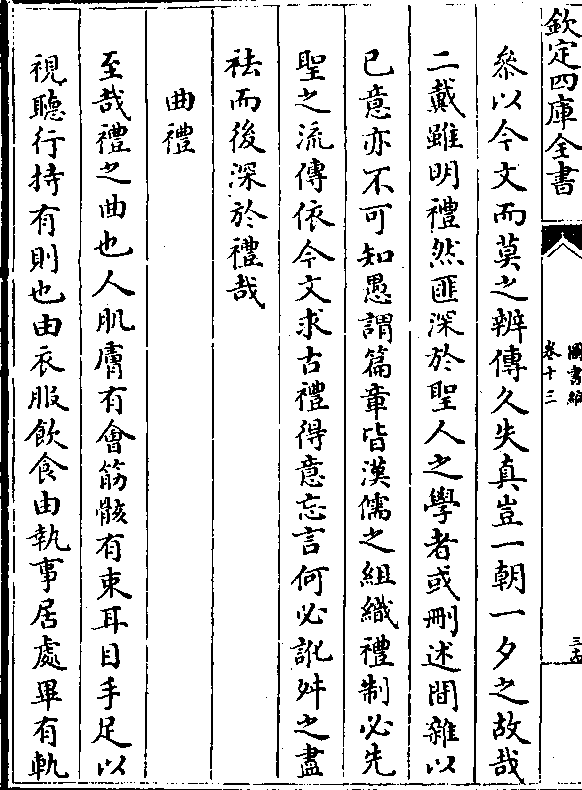 欽定四庫全書
圖書編
卷十三
叅以今文而莫之辨傳久失真豈一朝一夕之故哉
二戴雖明禮然匪深於聖人之學者或刪述間雜以
已意亦不可知愚謂篇章皆漢儒之組織禮制必先
聖之流傳依今文求古禮得意忘言何必訛舛之盡
祛而後深於禮哉
曲禮
至哉禮之曲也人肌膚有會筋骸有束耳目手足以
視聽行持有則也由衣服飲食由執事居處畢有軌